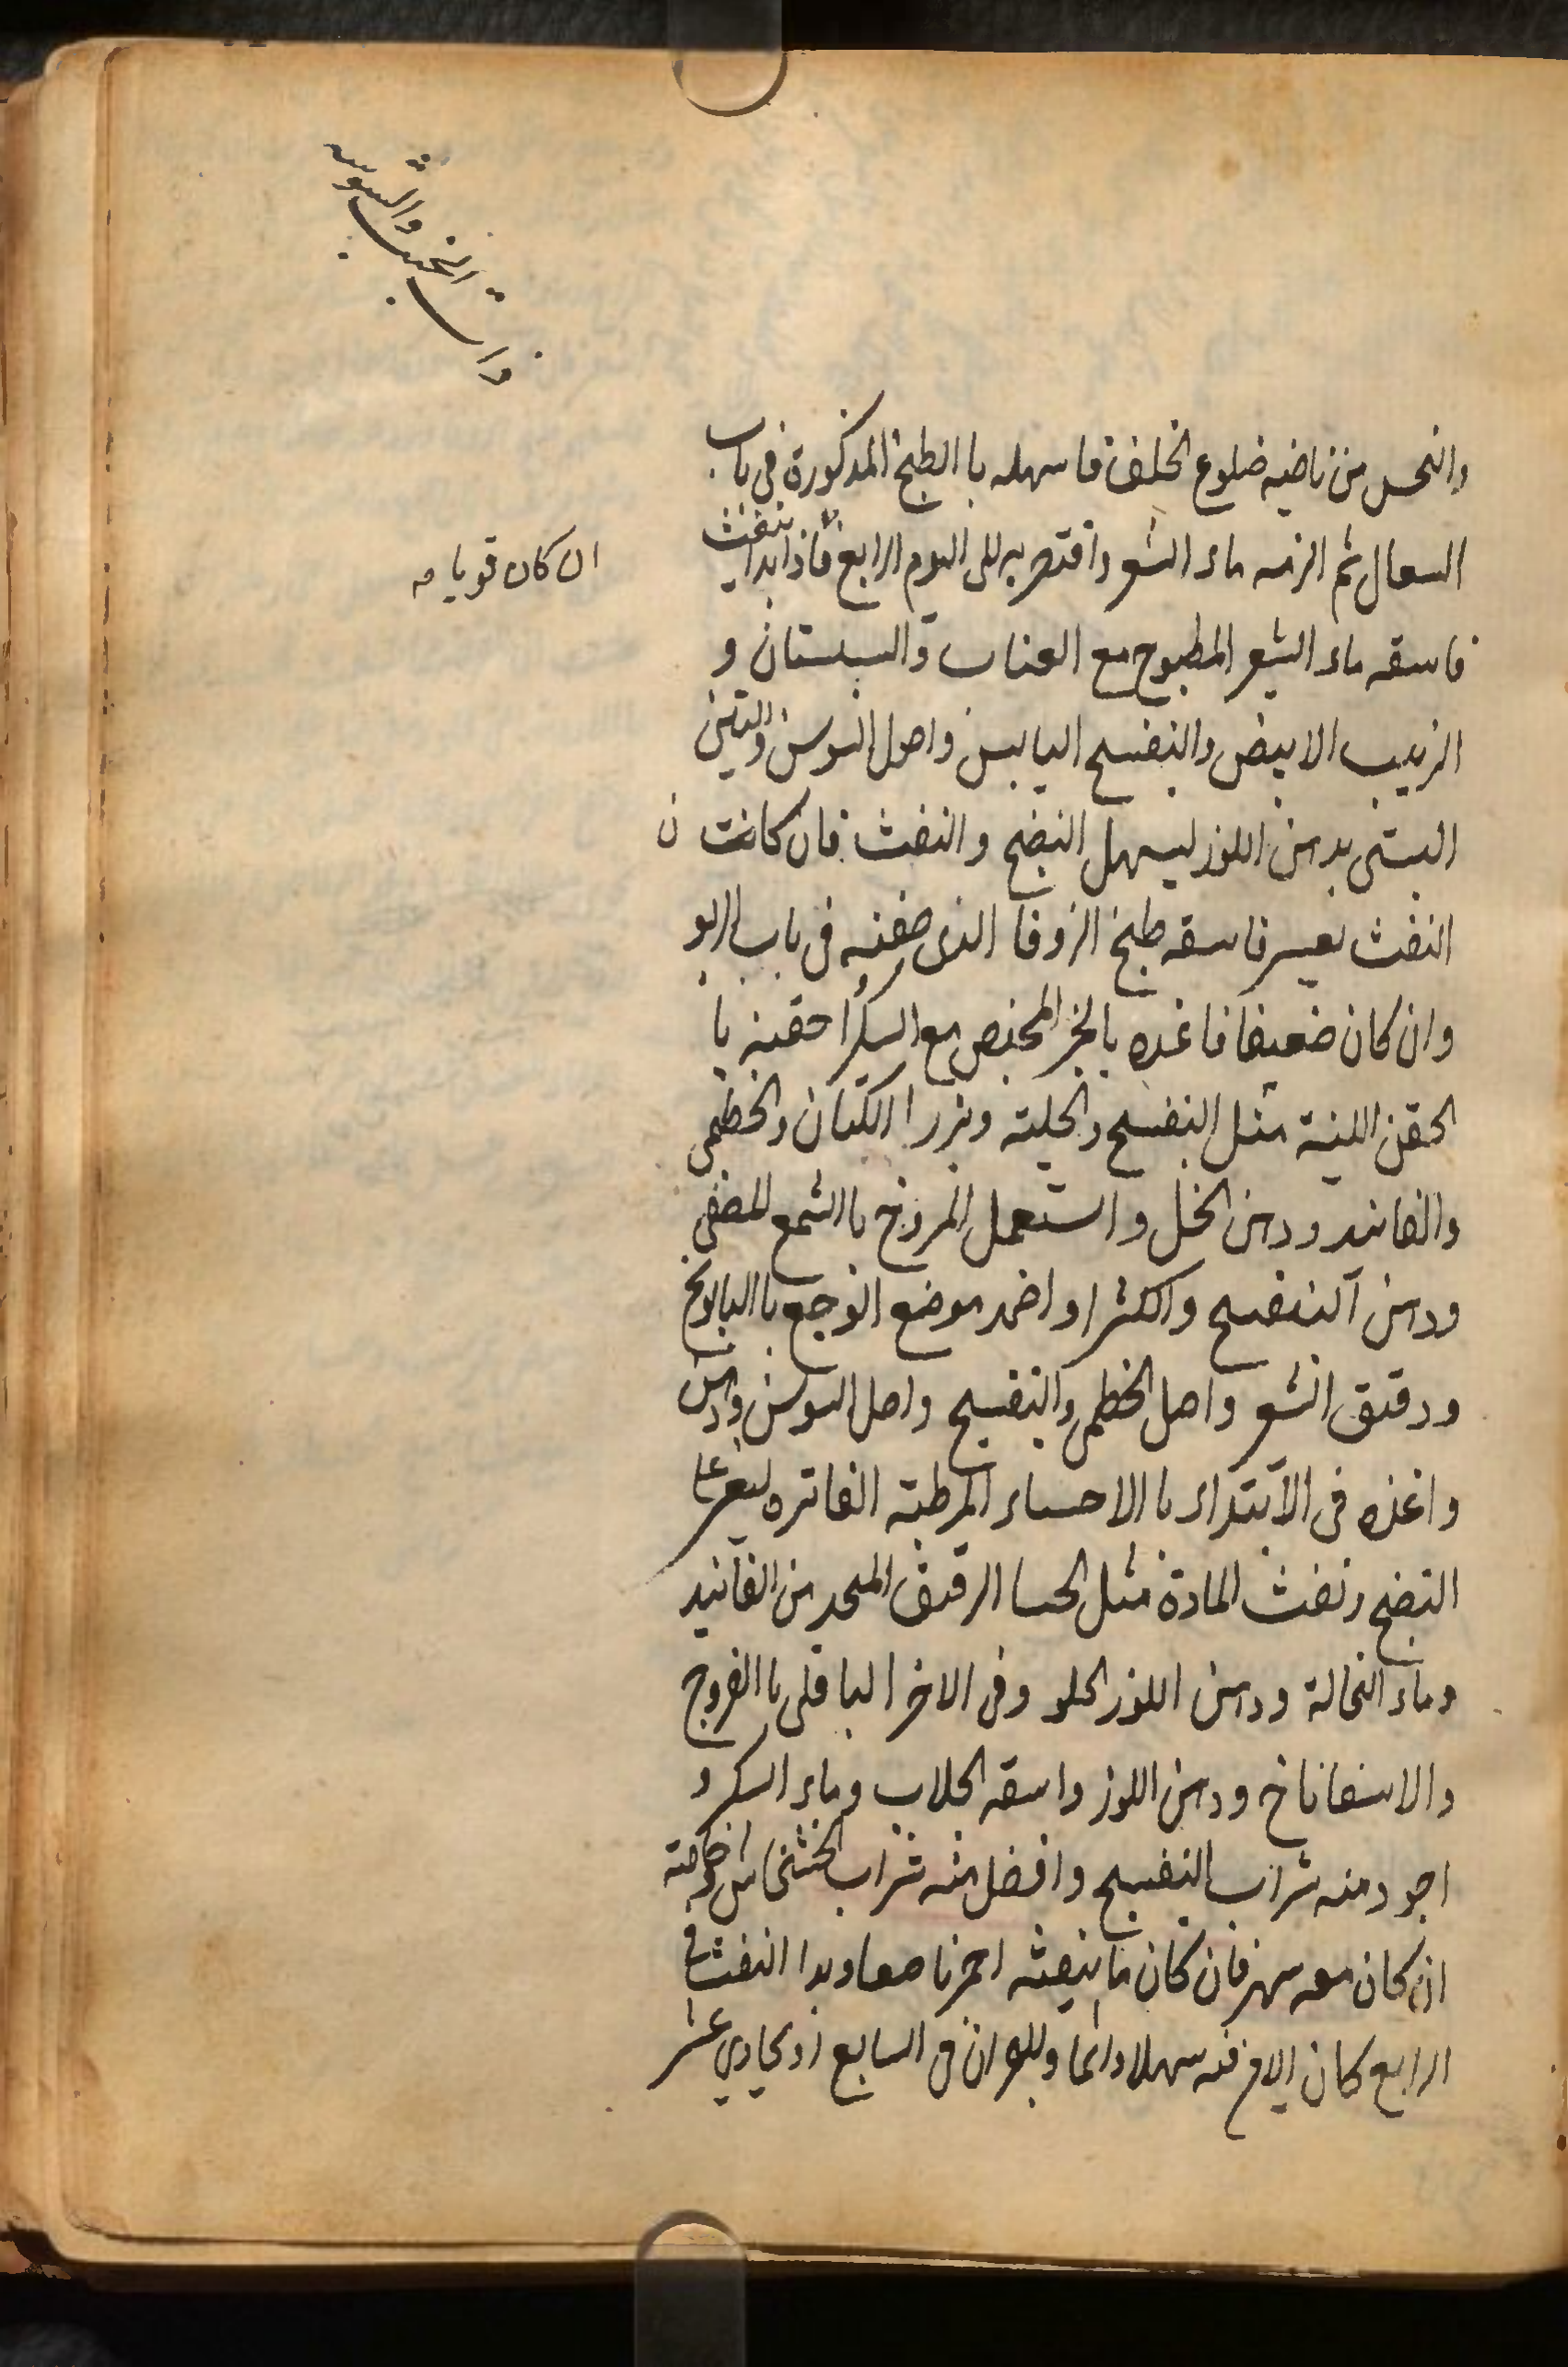 ذات الجنب والشوصه
والنخس من ناحيه ضلوع الخلف فاسهله با الطبخ المذكورة فى باب
السعال ثم الزمه ماء الشعر واقتصر به الى اليوم الرابع فاذا بدا ينفث
ان كان قويا مه
فاسقه ماء الشعر المطبوخ مع العناب والسبستان و
الزبيب الابيض والبنفسج اليابس واصل السوس والتين
البستى بدهن اللوز ليسهل النضج والنفث فان كانت ن
النفث بعسر فاسقه طبخ الزوفا الذى صفته فى باب الربو
وان كان ضعيفا فاغذه بالخبز المخبص مع السكر احقنه با
الحقن اللينة مثل البنفسج والحلبته وبزر الكتان والخطمى
والفانيد ودهن الخل واستعمل المروخ با الشمع المصفى
ودهن البنفسج والكثيرا واضمد موضع الوجع با البابونج
ودقيق الشعر واصل الخطمى والبنفسج واصل السوس ودهن
واغذه فى الابتداء با الاحساء المرطبته الفاتره ليعر على
النضج ونفث المادة مثل الحسا الرقيق المتخذ من الفانيد
وماء النخالة ودهن اللوز الحلو وفى الاخر الباقلى با الفروج
والاسفاناخ ودهن اللوز واسقه الجلاب وماء السكر و
اجود منه شراب البنفسج وافضل منه شراب الخشخاش خاصته
ان كان معه سهر فان كان ما ينفثه احمر ناصعا وبدا النفث فى
الرابع كان الامر فيه سهلا دائما والبحران فى السابع او الحادي عشر